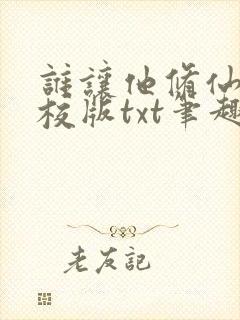 誰讓他脩仙
校版txt筆趣
老友記